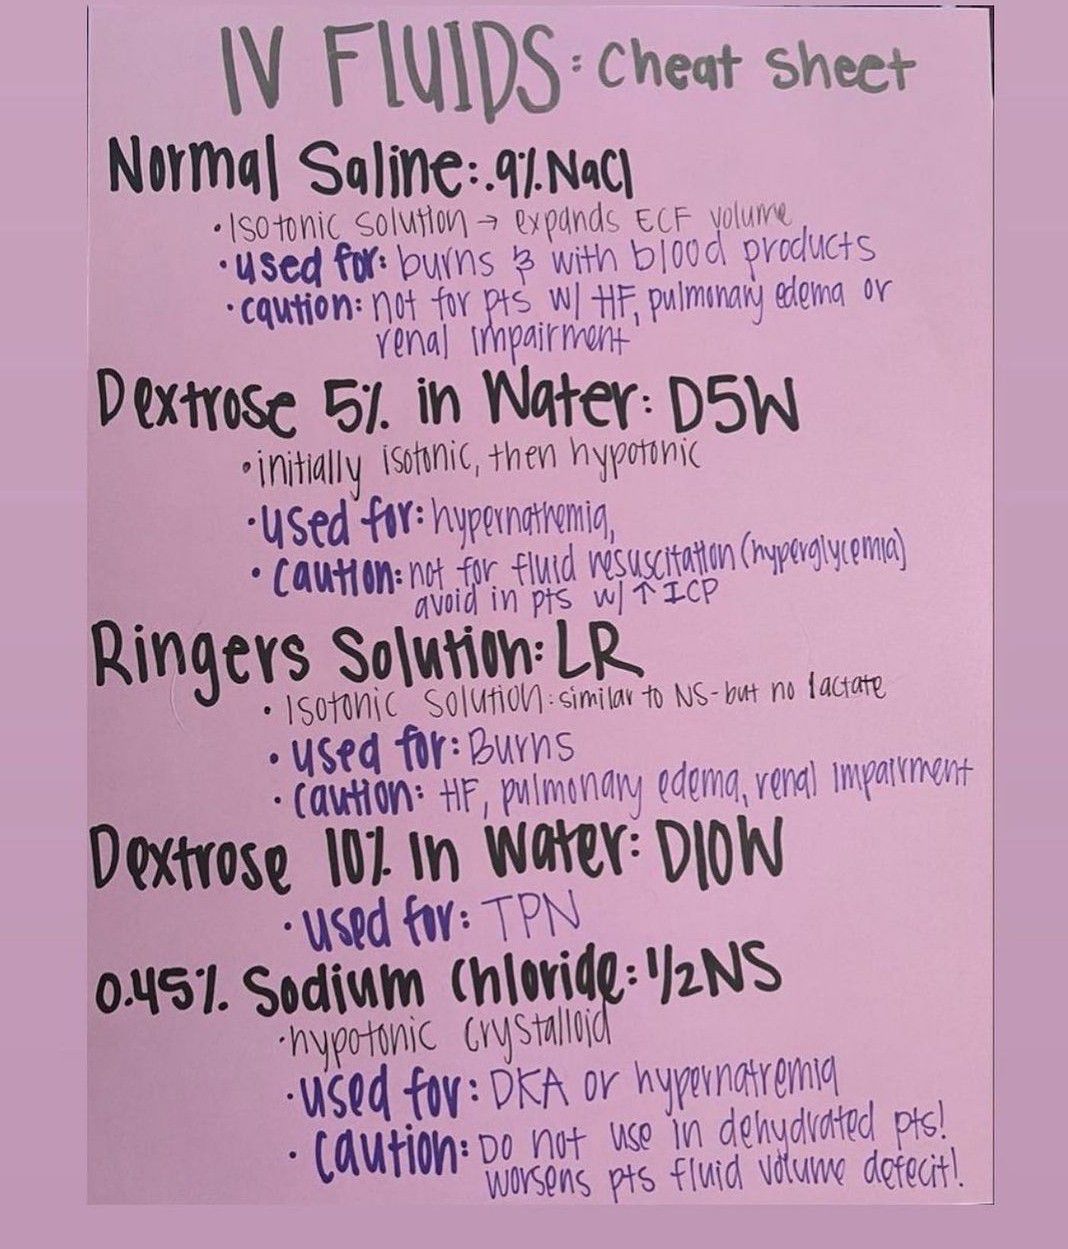 IV FLUIDS: Cheat Sheet
Normal Saline: .9% NaCl
• Isotonic solution → expands ECF volume
• used for: burns & with blood products
• caution: not for pts w/ HF, pulmonary edema or
renal impairment
Dextrose 5% in Water: D5W
• initially isotonic, then hypotonic
• used for: hypernathemia,
• Caution: not for fluid resuscitation (hyperglycemia)
avoid in pts w/ ↑ ICP
Ringers Solution: LR
• Isotonic solution: similar to NS - but no lactate
• used for: Burns
• Caution: HF, pulmonary edema, renal impairment
Dextrose 10% In Water: D10W
• used for: TPN
0.45% Sodium Chloride: 1/2NS
• hypotonic crystalloid
• used for: DKA or hypernatremia
• Caution: DO not use in dehydrated pts!
worsens pts fluid volume defecit!